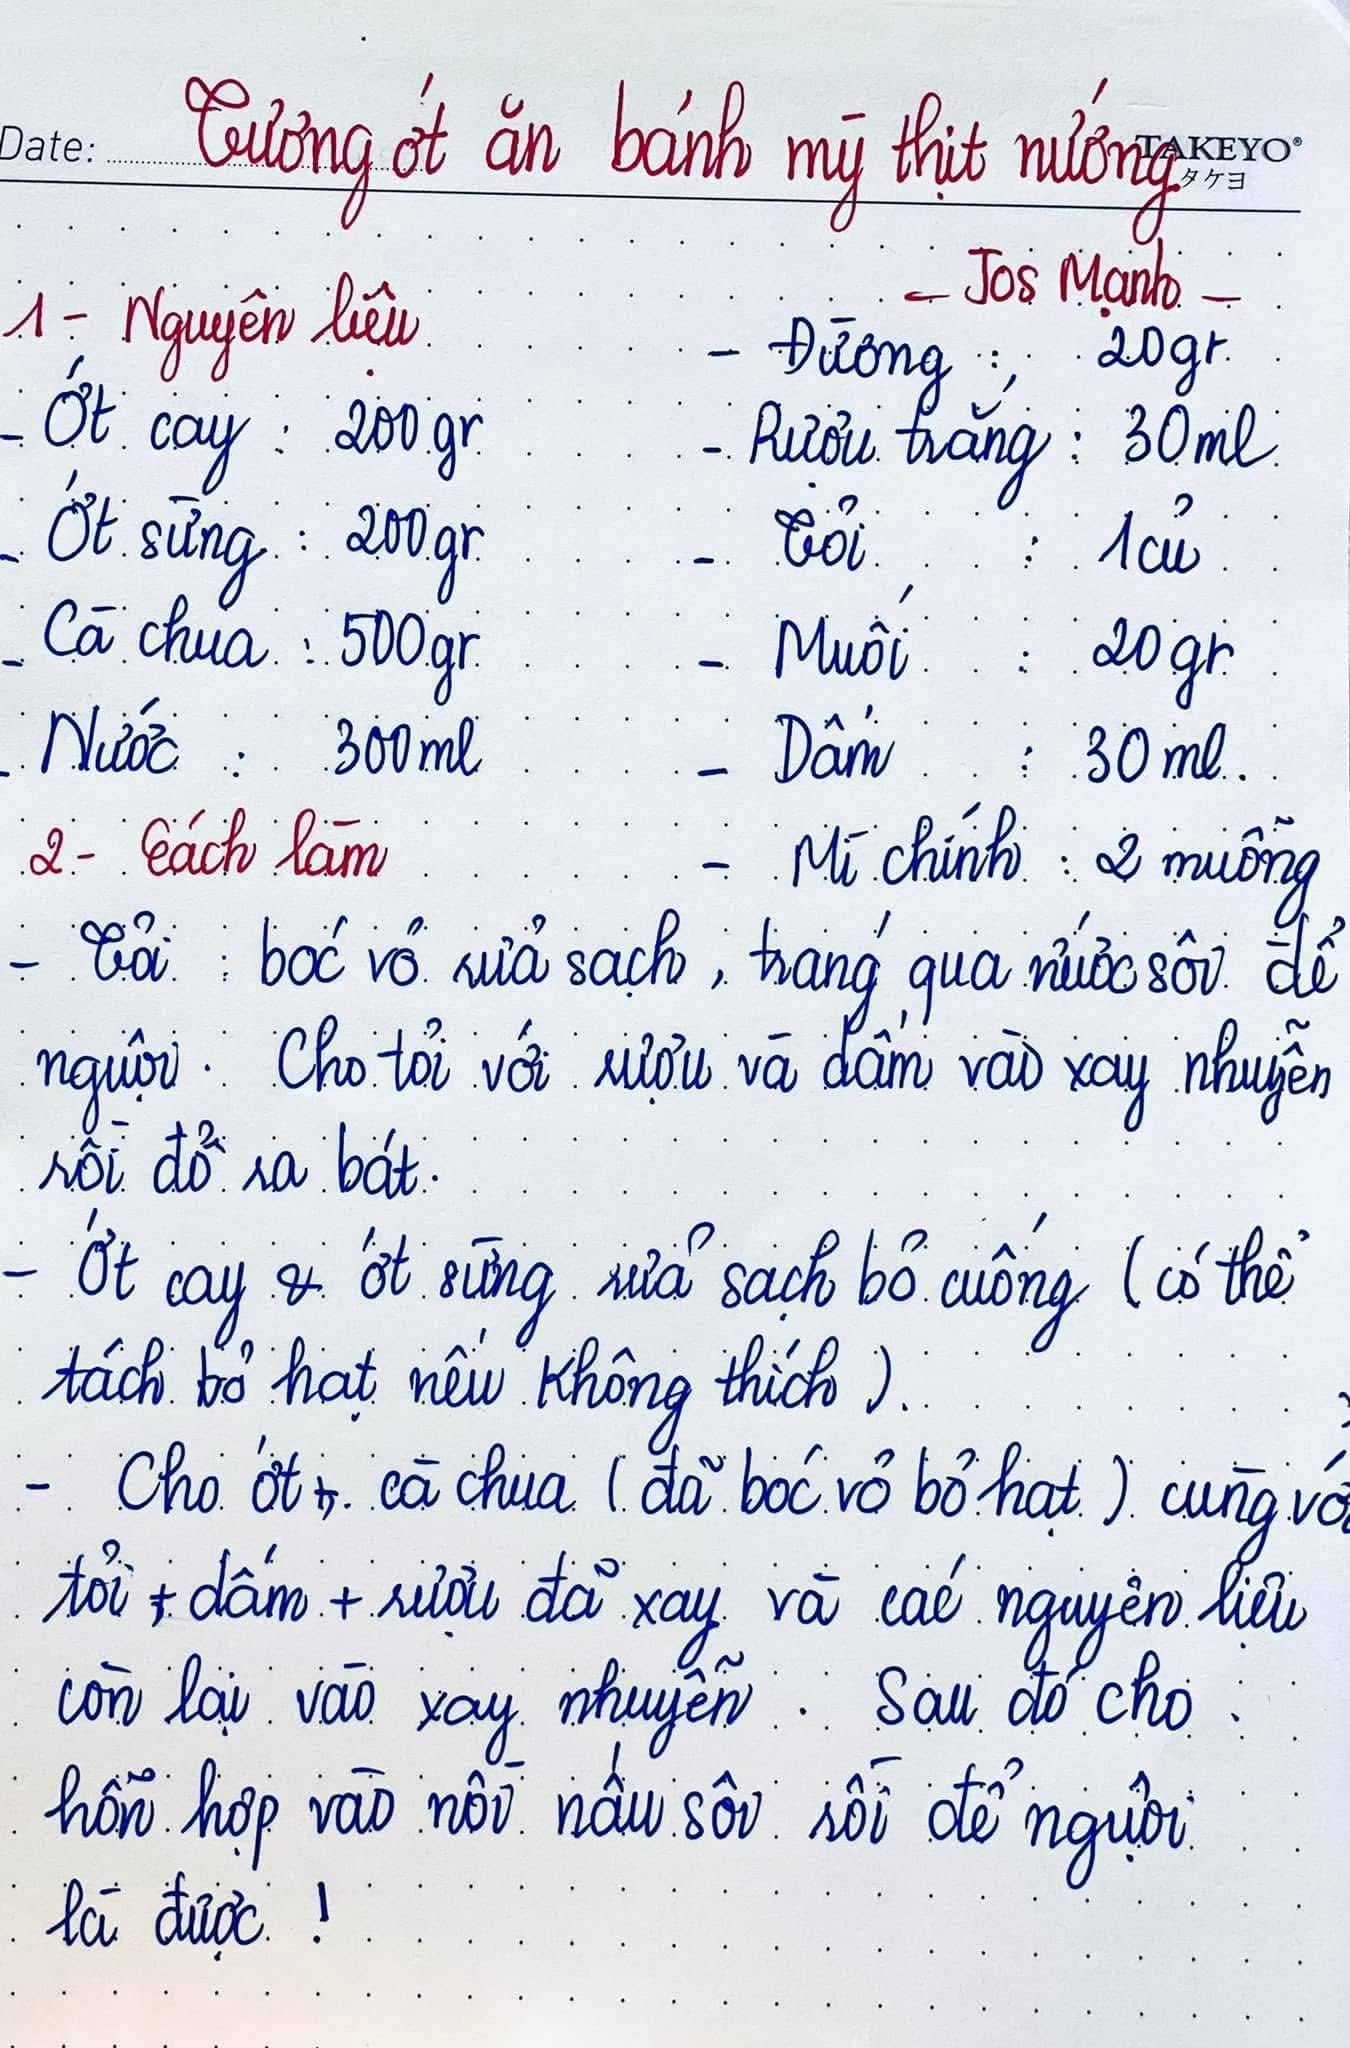 Date: Tương ớt ăn bánh mỳ thịt nướng TAKEYO®
タケヨ
- Jos Mạnh -
1 - Nguyên liệu
- Ớt cay : 200gr
- Ớt sừng : 200gr
- Cà chua : 500gr
- Nước : 300ml
- Đường : 20gr
- Rượu trắng : 30ml
- Tỏi : 1 củ
- Muối : 20gr
- Dấm : 30ml.
- Mì chính : 2 muỗng
2 - Cách làm
- Tỏi : bóc vỏ rửa sạch, tráng qua nước sôi để
nguội. Cho tỏi với rượu và dấm vào xay nhuyễn
rồi đổ ra bát.
- Ớt cay & ớt sừng rửa sạch bỏ cuống (có thể
tách bỏ hạt nếu không thích).
- Cho ớt + cà chua (đã bóc vỏ bỏ hạt) cùng với
tỏi + dấm + rượu đã xay và các nguyên liệu
còn lại vào xay nhuyễn. Sau đó cho
hỗn hợp vào nồi nấu sôi rồi để nguội
là được !